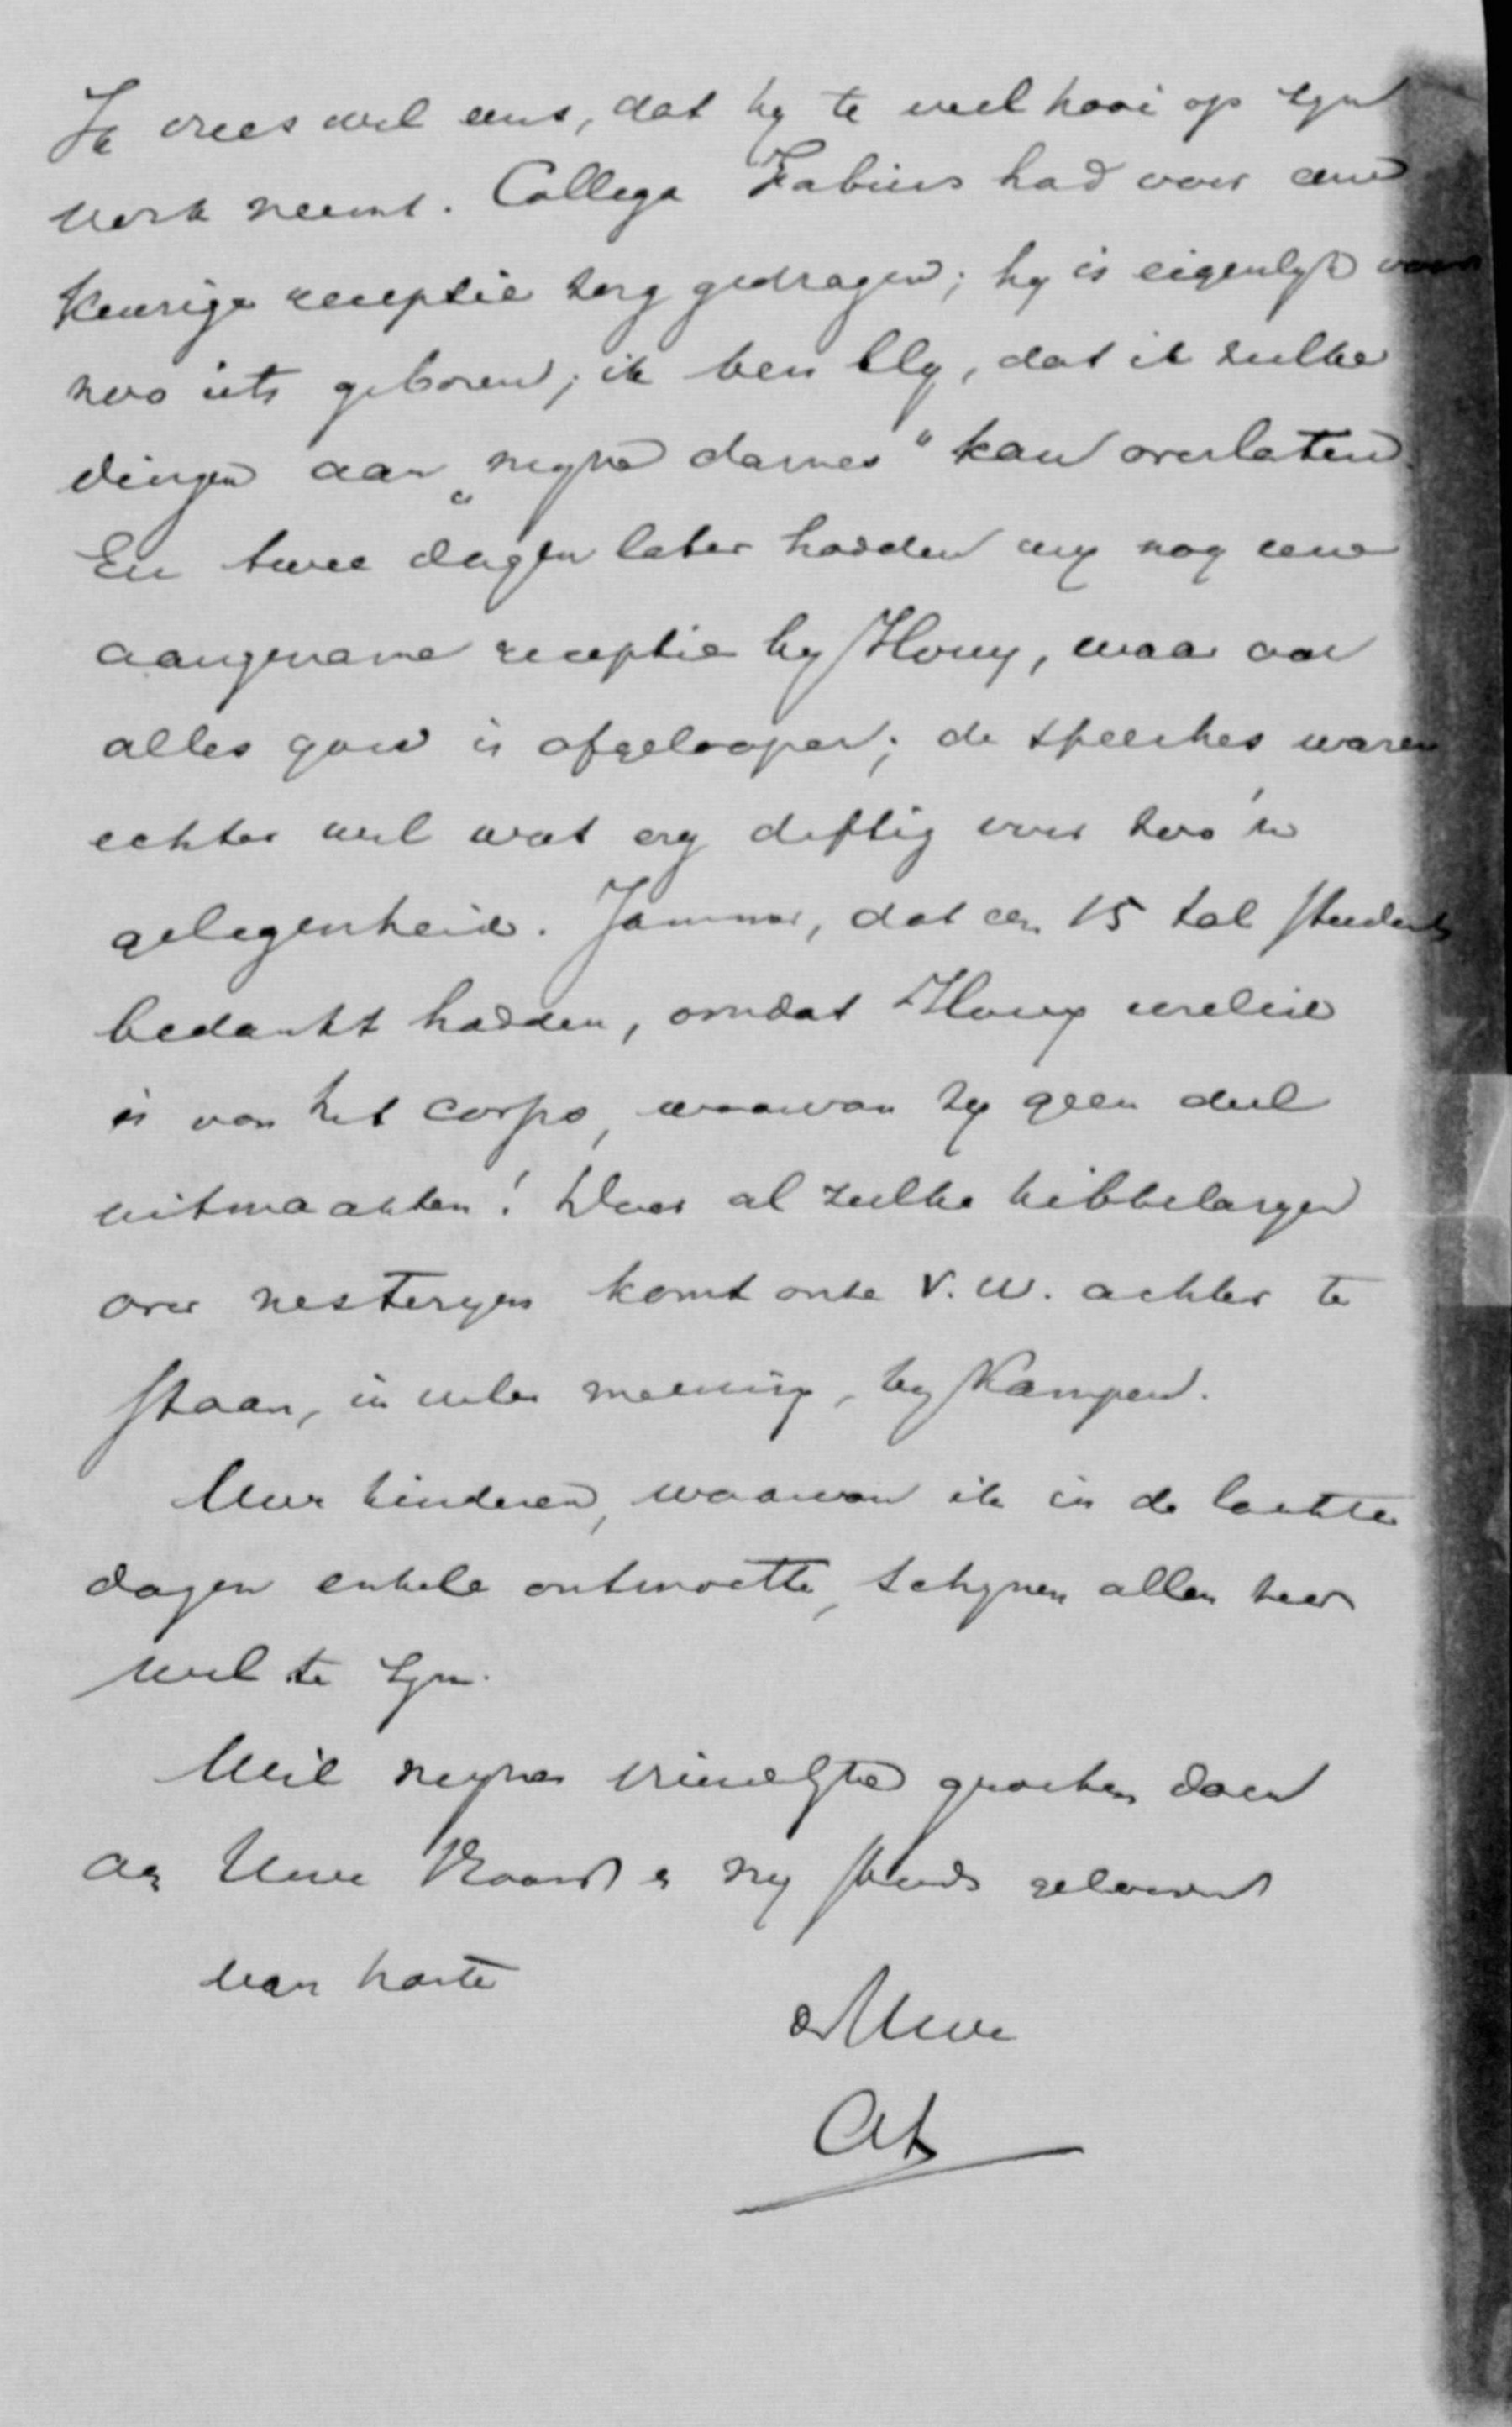 Ik vrees wel eens, dat hy te veel hooi op zyn
vork neemt. Collega Fabius had voor eene
keurige receptie zorg gedragen; hy is eigenlyk voor
zoo iets geboren; ik ben bly, dat ik zulke
dingen aan „myne dames" kan overlaten.
En twee dagen later hadden wy nog eene
aangename receptie by Hovy, waar ook
alles goed is afgeloopen; de speeches waren
echter wel wat erg deftig voor zoo'n
gelegenheid. Jammer, dat een 15 tal studenten
bedankt hadden, omdat Hovy eerelid
is van het corps, waarvan zy geen deel
uitmaakten! Door al zulke kibbelaryen
over nesteryen komt onze V.U. achter te
staan, in veler meening, by Kampen.
Uwe kinderen, waarvan ik in de laatste
dagen enkele ontmoette, schynen allen zeer
wel te zyn.
Wil myne vriendelyke groeten doen
aan Uwe Vrouw en my steeds gelooven
van harte
de Uwe